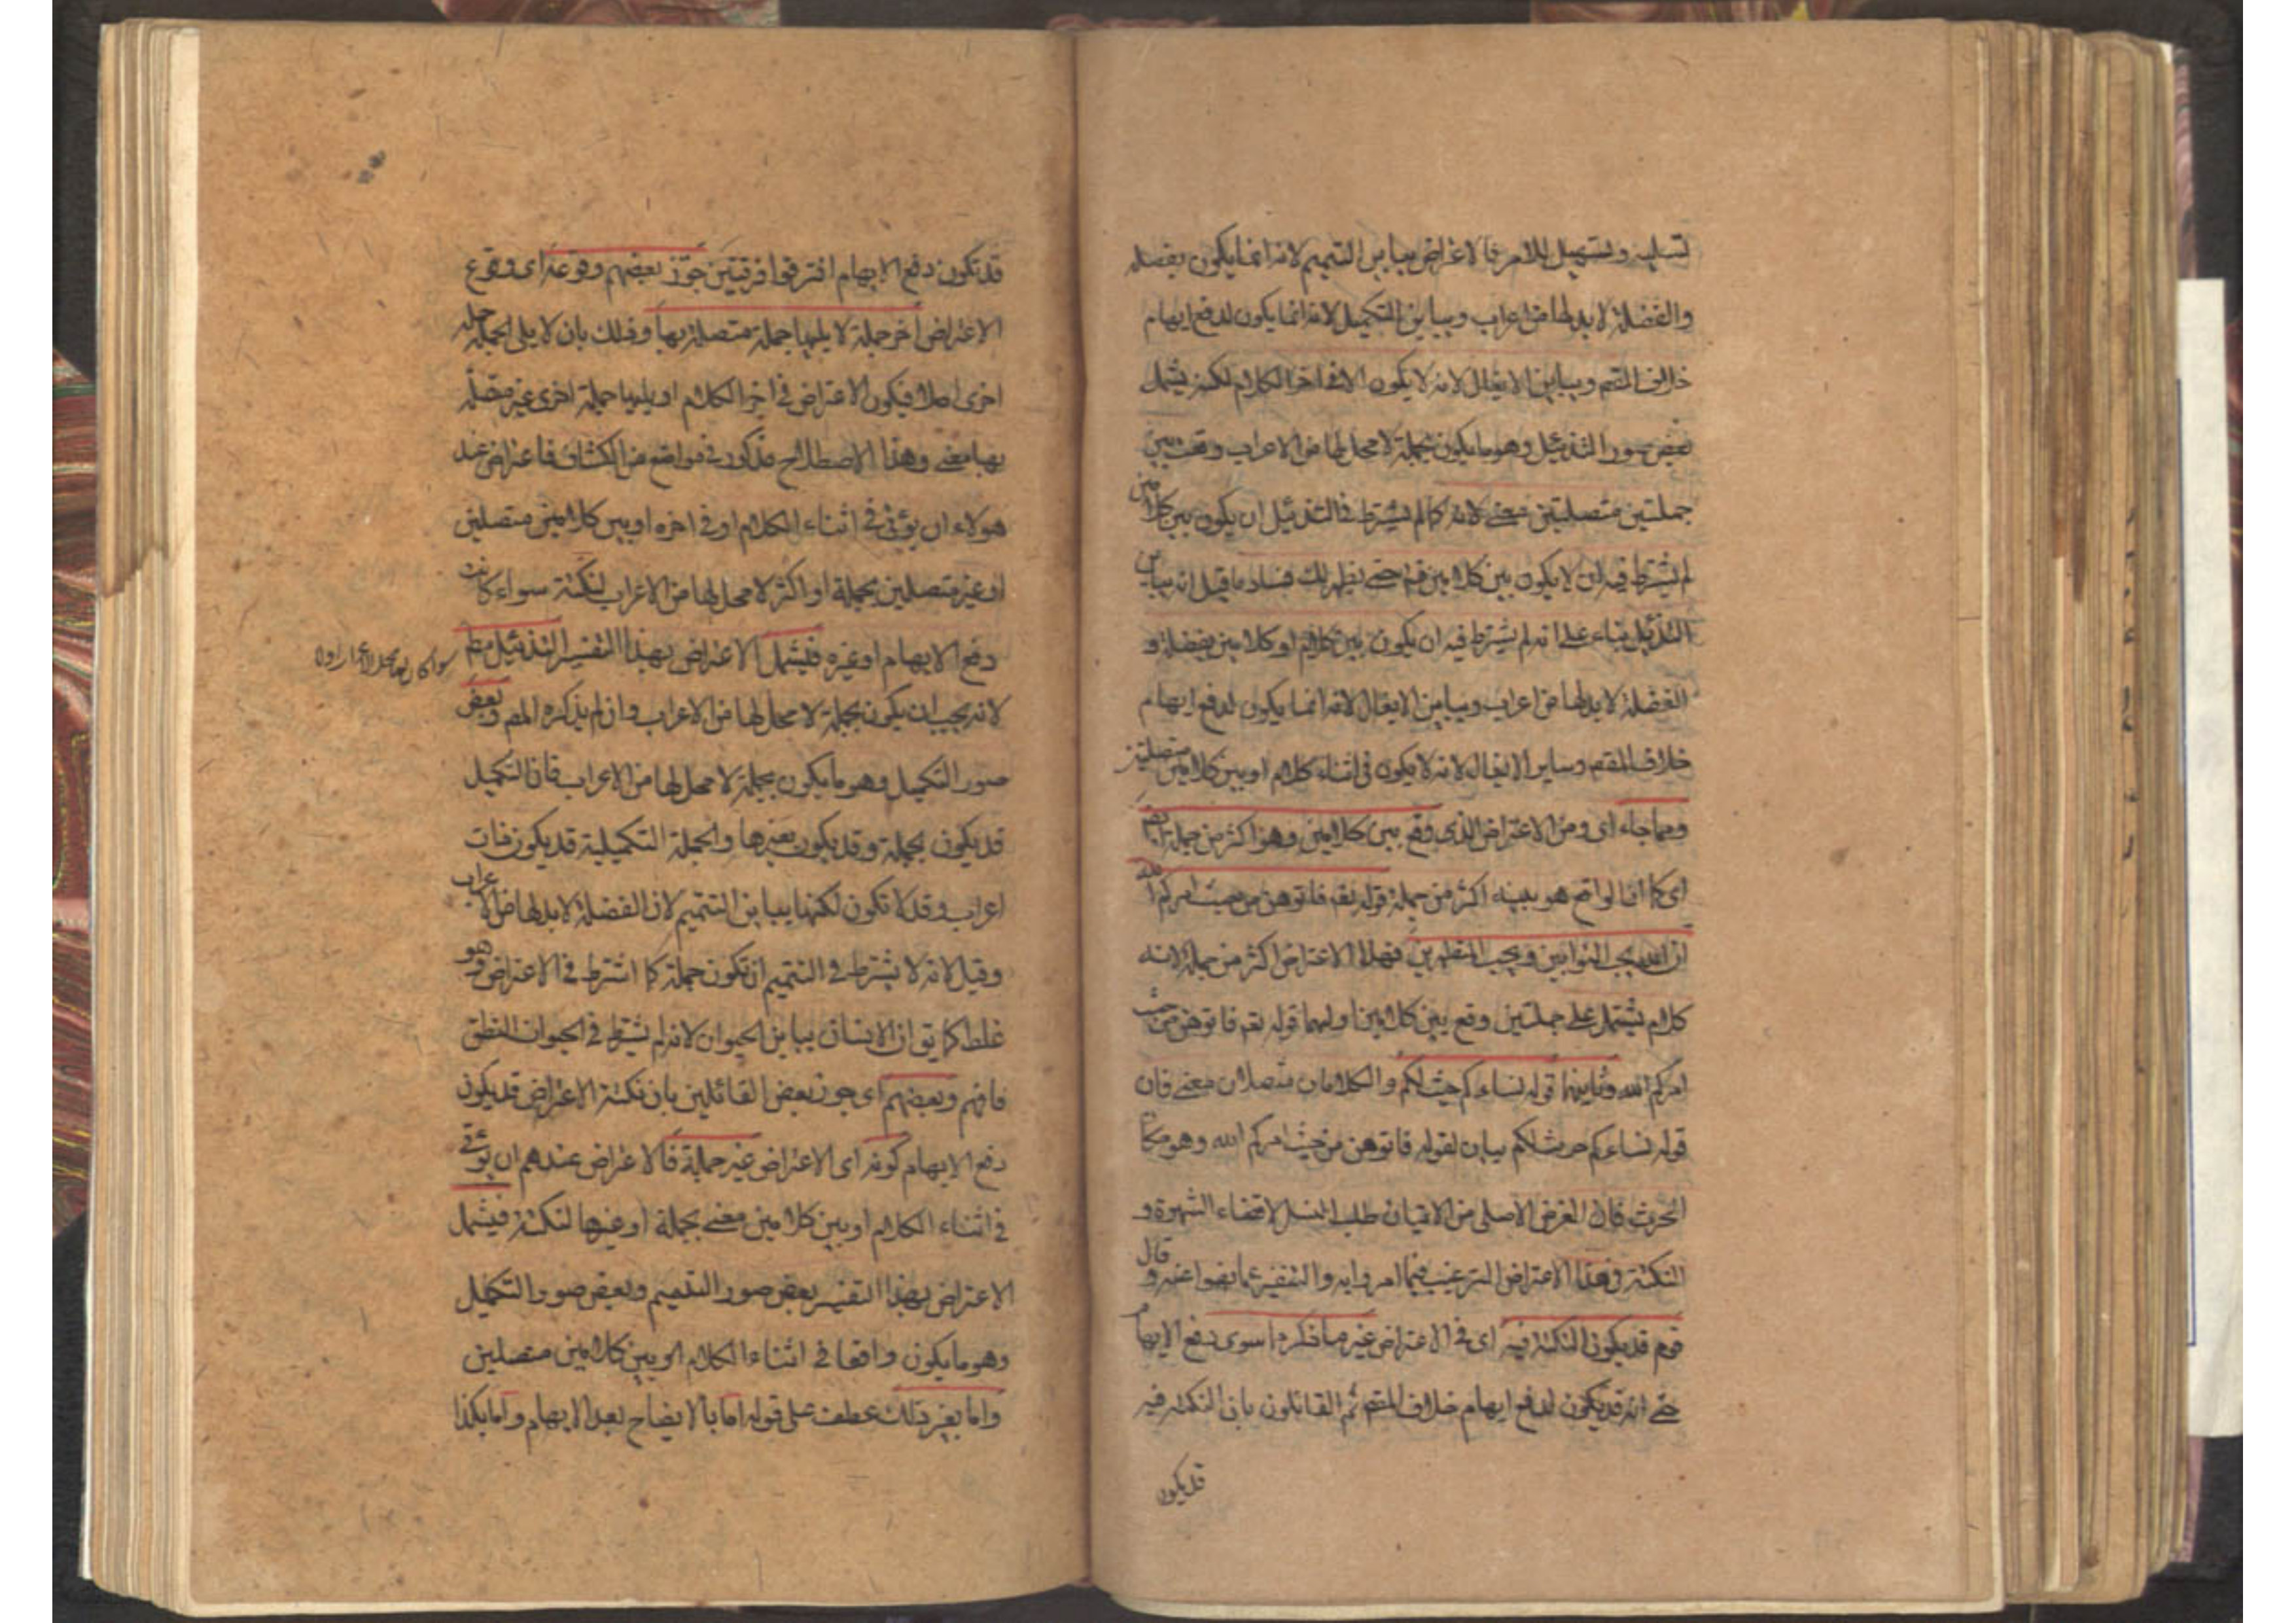 تسلية وتسهيل للامر فالاعتراض يباين التتميم لانه انما يكون بفضلة
والفضلة لا بد لها من اعراب ويباين التكميل لانه انما يكون لدفع ايهام
خلاف المقصم ويباين الايغال لانه لا يكون الا في اخر الكلام لكنه يشمل
بعض صور التذئيل وهو ما يكون بجملة لا محل لها من الاعراب وقعت بين
جملتين متصلتين معنى لانه كما لم يشترط في التذئيل ان يكون بين كلامين
لم يشترط فيه ان لا يكون بين كلامين فتم حتى يظهر لك فساد ما قيل انه يباين
التذئيل بناء على انه لم يشترط فيه ان يكون بين كلام او كلامين بفضلة و
الفضلة لا بد لها من اعراب ويباين الايغال لانه انما يكون لدفع ايهام
خلاف المقصم وساير الايغال لانه لا يكون في اثناء كلام او بين كلامين متصلتين
ومما جاء اى ومن الاعتراض الذى وقع بين كلامين وهو اكثر من جملة ايضا
اى كما ان الواقع هو بينه اكثر من جملة قوله تعه فاتوهن من حيث امركم الله
ان الله يحب التوابين ويحب المتطهرين فهذا الاعتراض اكثر من جملة لانه
كلام يشتمل على جملتين وقع بين كلامين اولهما قوله تعه فاتوهن من حيث
امركم الله وثانيهما قوله نساءكم حرث لكم والكلامان متصلان معنى فان
قوله نساءكم حرث لكم بيان لقوله فاتوهن من حيث امركم الله وهو مكان
الحرث فان الغرض الاصلى من الاتيان طلب النسل لا قضاء الشهوة و
النكتة في هذا الاعتراض الترغيب فيما امروا به والتنفير عما نهوا عنه وقال
قوم قد يكون النكتة فيه اى في الاعتراض غير ما ذكر ما سوى دفع الايهام
حتى انه قد يكون لدفع ايهام خلاف المقصم ثم القائلون بان النكتة فيه
قد يكون
قد تكون دفع الايهام افترقوا فرقتين جوز بعضهم وقوعه اى وقوع
الاعتراض اخر جملة لا يليها جملة متصلة بها وذلك بان لا يلى الجملة جملة
اخرى اصلا فيكون الاعتراض في اخر الكلام او يليها جملة اخرى غير متصلة
بها معنى وهذا الاصطلاح مذكور في مواضع من الكشاف فاعتراض عند
هولاء ان يؤتى في اثناء الكلام او في اخره او بين كلامين متصلين
او غير متصلين بجملة او اكثر لا محل لها من الاعراب لنكتة سواء كانت
دفع الايهام او غيره فيشمل الاعتراض بهذا التفسير التذئيل مطم
لانه يجب ان يكون بجملة لا محل لها من الاعراب وان لم يذكره المصم وبعض
صور التكميل وهو ما يكون بجملة لا محل لها من الاعراب فان التكميل
قد يكون بجملة وقد يكون بغيرها والجملة التكميلية قد يكون ذات
اعراب وقد لا تكون لكنها يباين التتميم لان الفضلة لا بد لها من الاعراب
وقيل لانه لا يشترط في التتميم ان تكون جملة كما اشترط في الاعتراض وهو
غلط كما يق ان الانسان يباين الحيوان لانه لم يشترط في الحيوان النطق
فافهم وبعضهم اى جوز بعض القائلين بان نكتة الاعتراض قد يكون
دفع الايهام كونه اى الاعتراض غير جملة فالاعتراض عندهم ان يؤتى
في اثناء الكلام او بين كلامين معنى بجملة او غيرها لنكتة فيشمل
الاعتراض بهذا التفسير بعض صور التتميم وبعض صور التكميل
وهو ما يكون واقعا في اثناء الكلام او بين كلامين متصلين
واما بغير ذلك عطف على قوله اما بالايضاح بعد الابهام واما بكذا